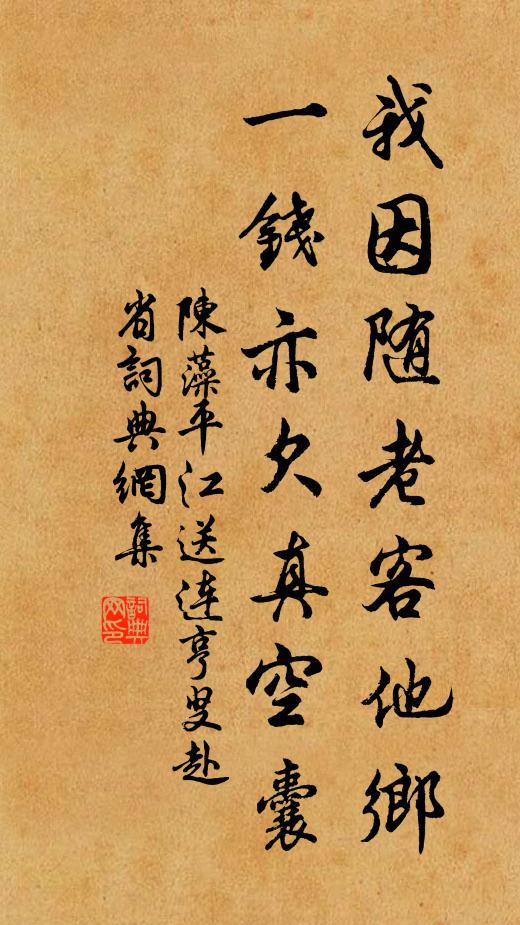 我因随老客他鄉
一錢亦欠真空囊
陳藻平江送连亨叟赴
省詞典網集
詞典网印